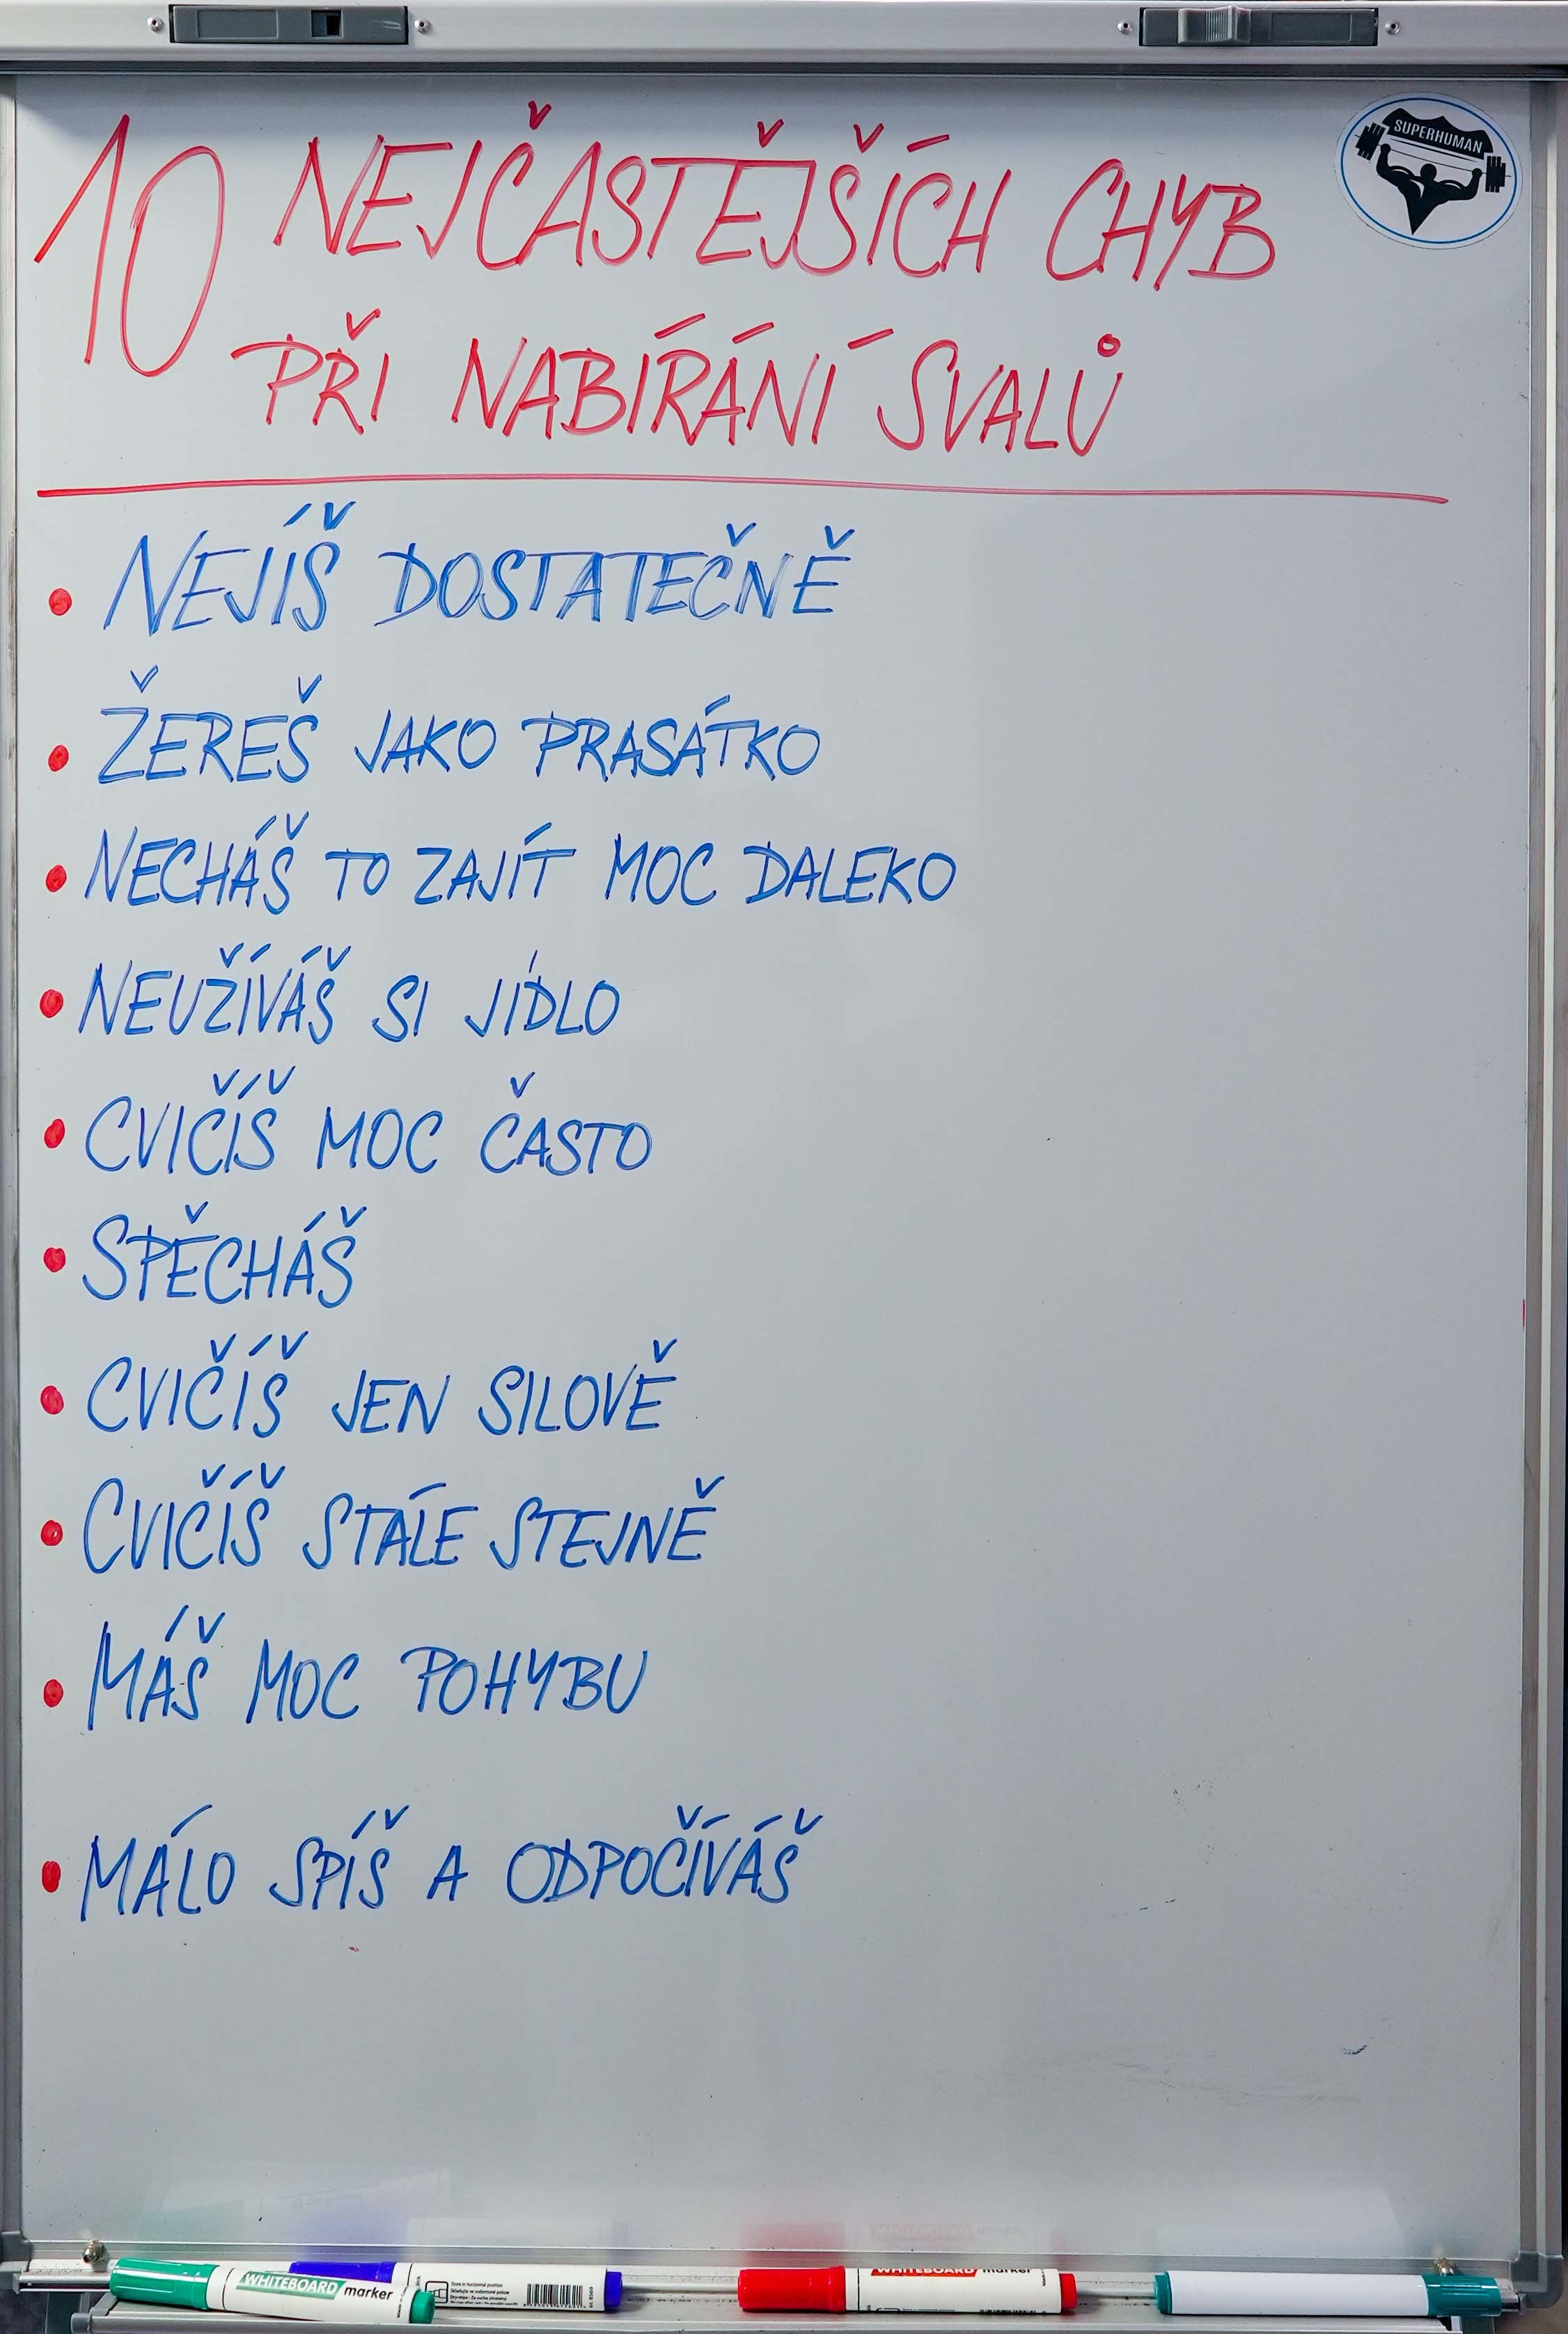 SUPERHUMAN
10 NEJČASTĚJŠÍCH CHYB
PŘI NABÍRÁNÍ SVALŮ
• NEJÍŠ DOSTATEČNĚ
• ŽEREŠ JAKO PRASÁTKO
• NECHÁŠ TO ZAJÍT MOC DALEKO
• NEUŽÍVÁŠ SI JÍDLO
• CVIČÍŠ MOC ČASTO
• SPĚCHÁŠ
• CVIČÍŠ JEN SILOVĚ
• CVIČÍŠ STÁLE STEJNĚ
• MÁŠ MOC POHYBU
• MÁLO SPÍŠ A ODPOČÍVÁŠ
WHITEBOARD marker
WHITEBOARD marker